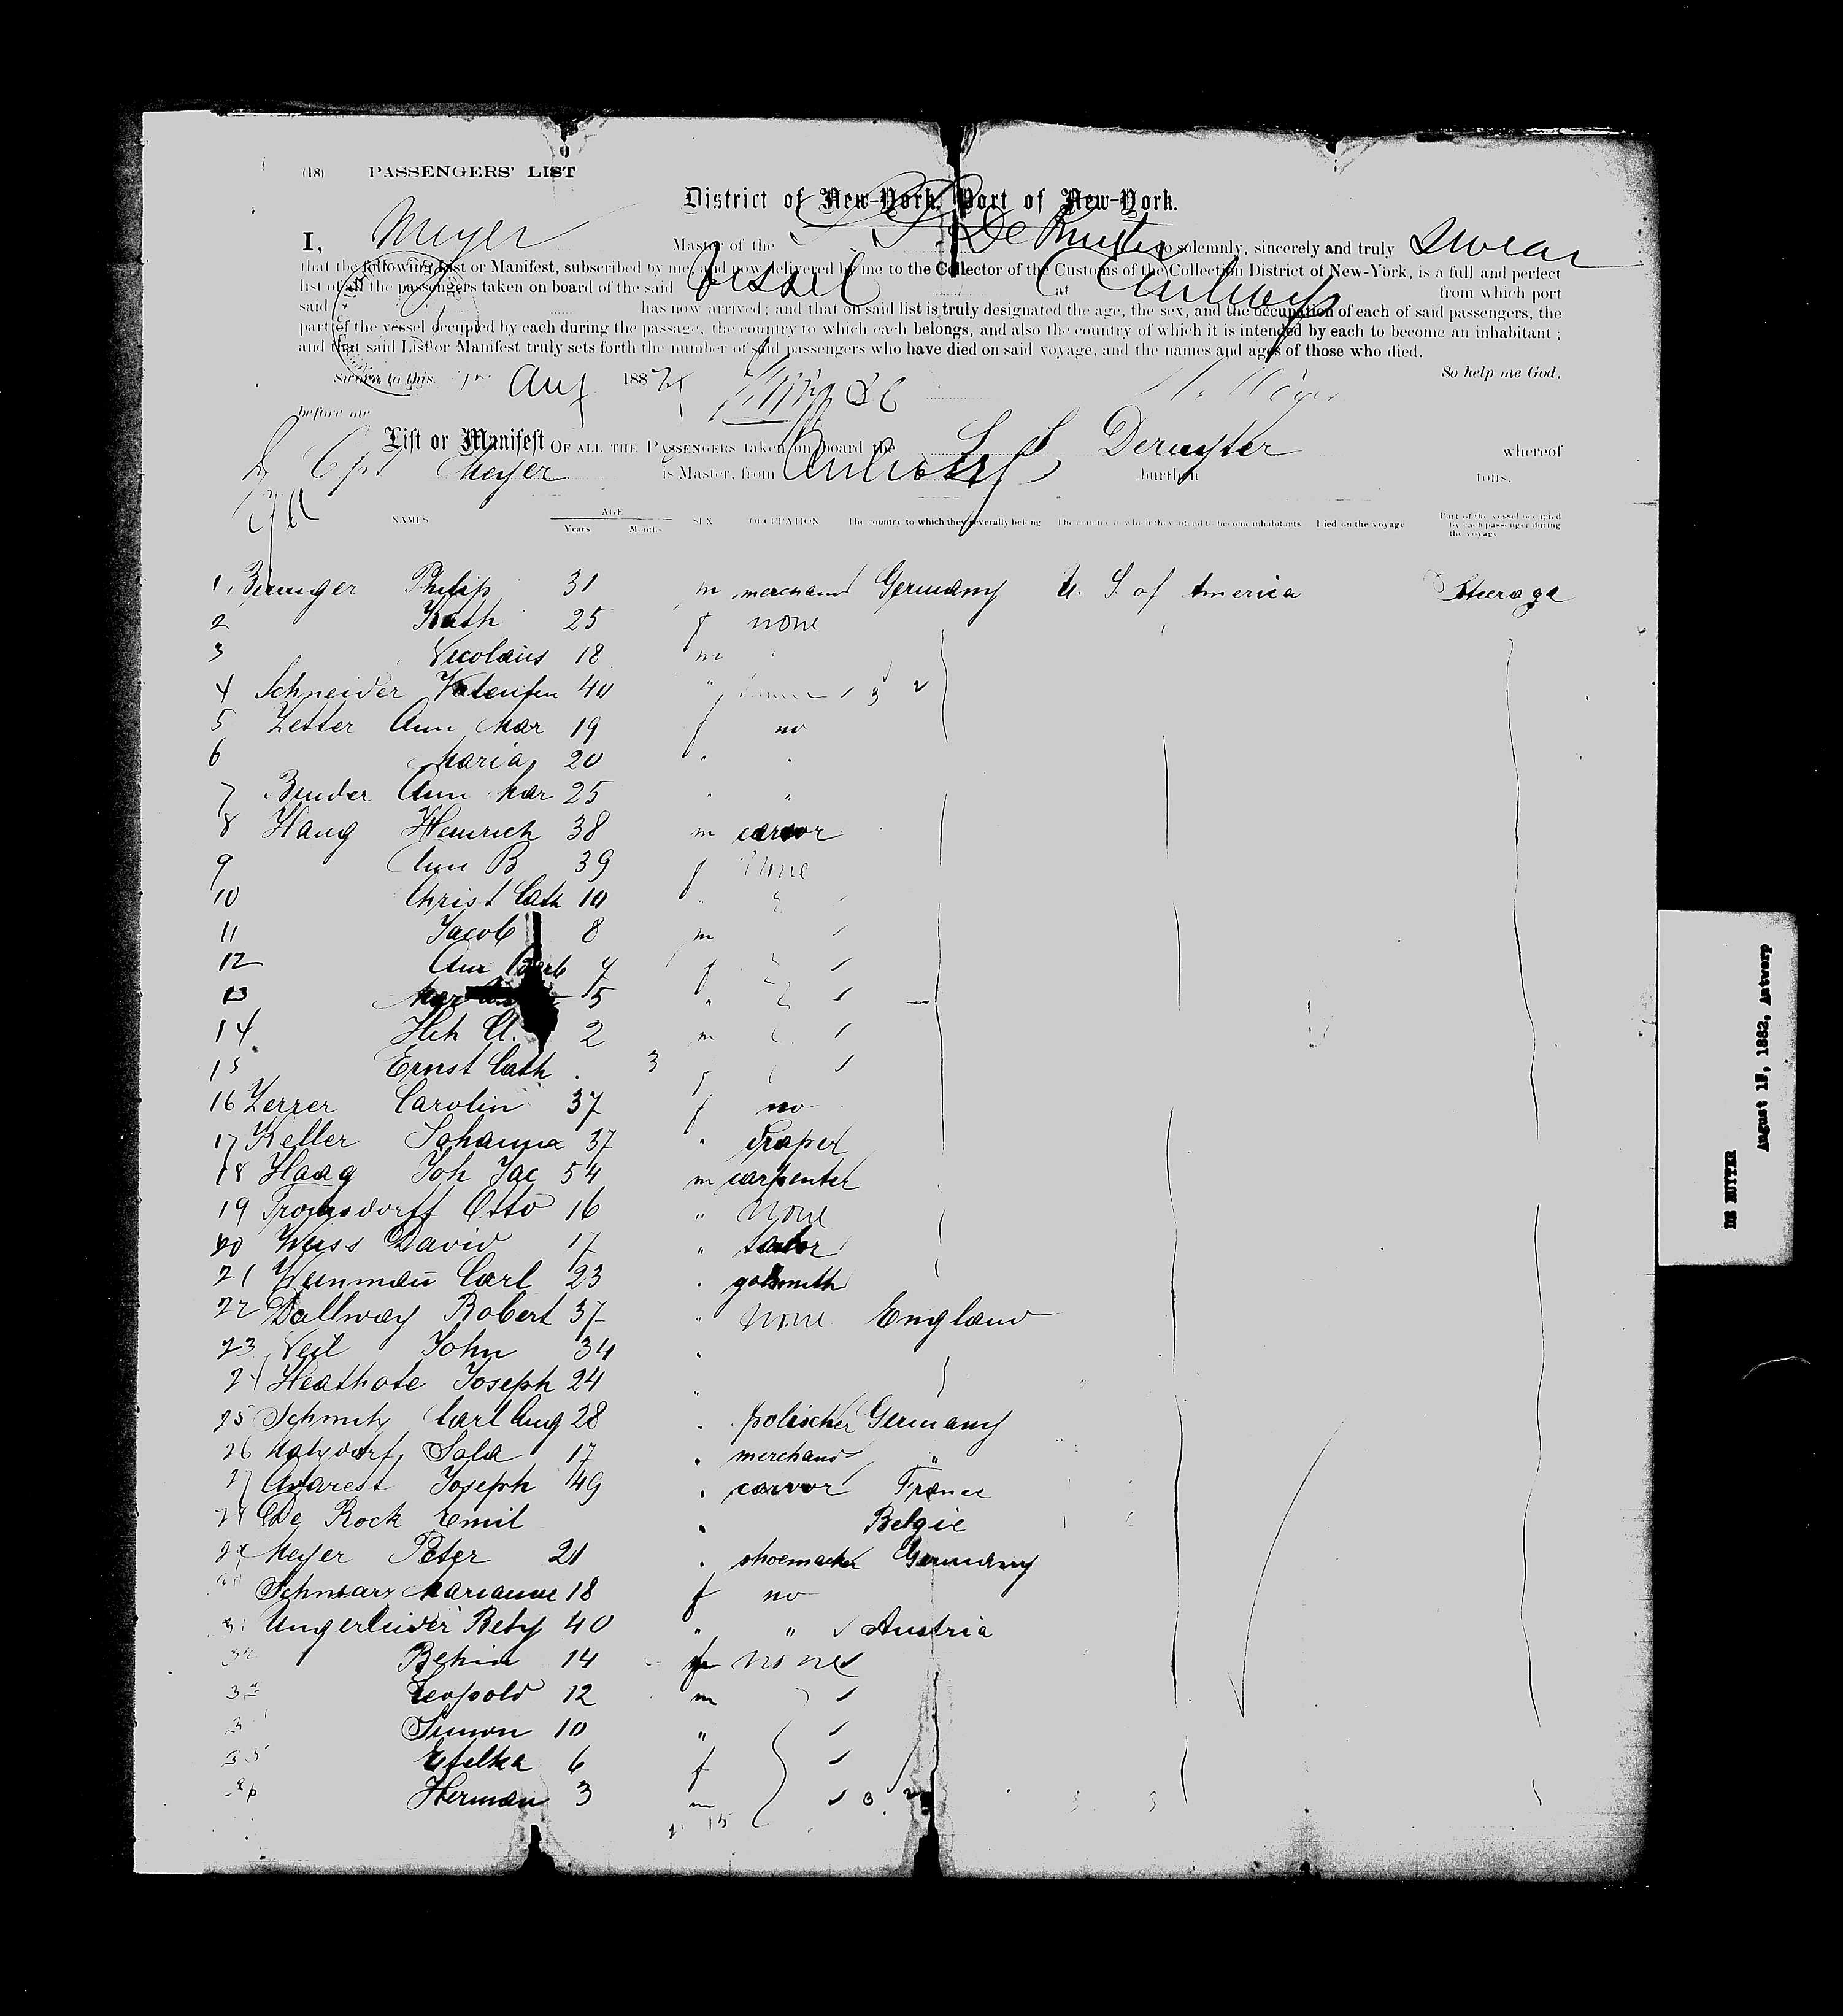 (18) PASSENGERS' LIST
District of New-York, Port of New-York.
I, Meyer Master of the S S De Ruyter do solemnly, sincerely and truly swear
that the following List or Manifest, subscribed by me, and now delivered by me to the Collector of the Customs of the Collection District of New-York, is a full and perfect
list of all the passengers taken on board of the said Vessel at Antwerp from which port
said has now arrived; and that on said list is truly designated the age, the sex, and the occupation of each of said passengers, the
part of the vessel occupied by each during the passage, the country to which each belongs, and also the country of which it is intended by each to become an inhabitant;
and that said List or Manifest truly sets forth the number of said passengers who have died on said voyage, and the names and ages of those who died.
Sworn to this Aug 1882 So help me God.
before me
List or Manifest OF ALL THE PASSENGERS taken on board the S S Deruyter whereof
Meyer is Master, from Antwerp burthen tons.
NAMES AGE Years Months SEX OCCUPATION The country to which they severally belong The country in which they intend to become inhabitants Died on the voyage Part of the vessel occupied by each passenger during the voyage
1 Philip 31 m merchand Germany U. S. of America Steerage
2 Kath 25 f none
3 Nicolaus 18 m
4 Schneider 40 "
5 Zetter Ann Mar 19 f no
6 Maria 20 "
7 Binder Ann Mar 25 " "
8 Haug Heinrich 38 m carvor
9 Ann B 39 f none
10 Christ Cath 10 "
11 Jacob 8 m
12 Ann Barb 7 f
13 Mar 5 "
14 Hch A. 2 m
15 Ernst Cath 3
16 Zerrer Carolin 37 f no
17 Keller Johanna 37 "
18 Haag Joh Jac 54 m carpenter
19 Tromsdorff Otto 16 " none
20 Weiss David 17 "
21 Carl 23 " golsmith
22 Dallway Robert 37 " none England
23 Veil John 34 "
24 Heathote Joseph 24 "
25 Schmitz Carl Aug 28 " polischer Germany
26 17 " merchand "
27 Joseph 49 " carvor France
28 De Rock Emil " Belgie
29 Meyer Peter 21 " shoemacher Germany
30 Schwarz Marianne 18 f no
31 Ungerleider Bety 40 " " Austria
32 14 f none
33 Leopold 12 m
34 Simon 10 "
35 Etelka 6 f
36 Herman 3 m
DE RUYTER
August 17, 1882, Antwerp